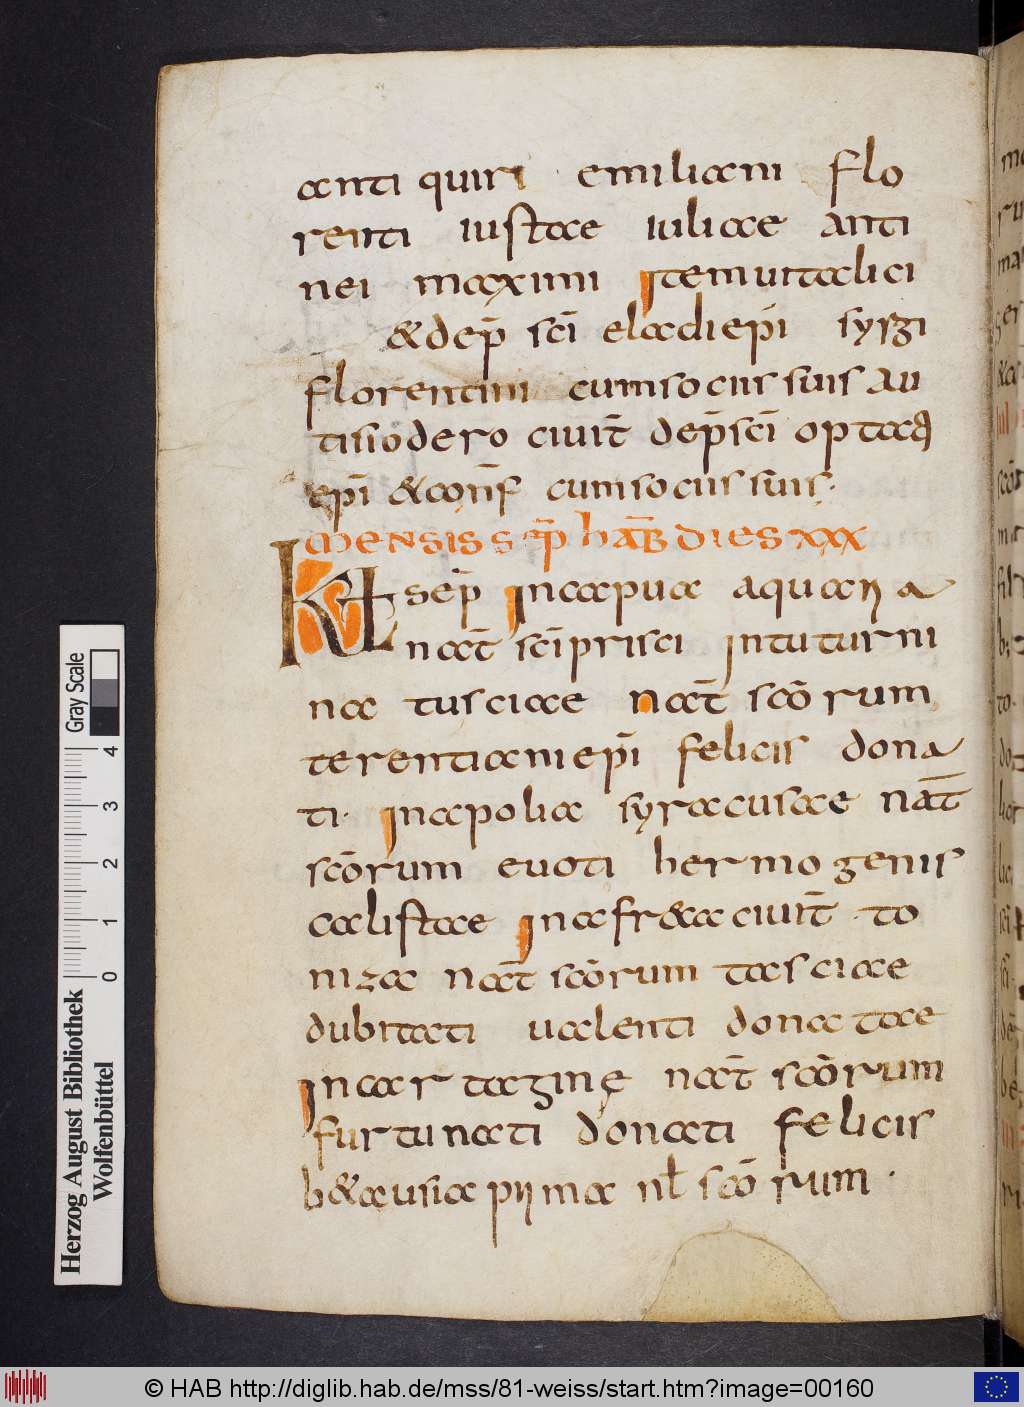 anti quiri emiliani flo
renti iustae iuliae anti
nei maximi item uitalici
& dep̄ scī eladi epī syrgi
florentini cum sociis suis au
tisiodero ciuit̄ dep̄ scī optaq
epī & conf̄ cum sociis suis·
mensis sep̄ hab̄ dies xxx
KL sep̄ in capua aquaria
nat̄ scī prisci in tuturni
na tusciae nat̄ scōrum
terentiani epī felicis dona
ti· in apolia syracusae nat̄
scōrum euoti hermogenis
calistae in afr&a ciuit̄ to
niza nat̄ scōrum tasciae
dubitati ualenti donatae
in cartagine nat̄ scōrum
furtunati donati felicis
b&ausia prima nł scōrum·
Gray Scale
4
3
2
1
0
Herzog August Bibliothek
Wolfenbüttel
© HAB http://diglib.hab.de/mss/81-weiss/start.htm?image=00160